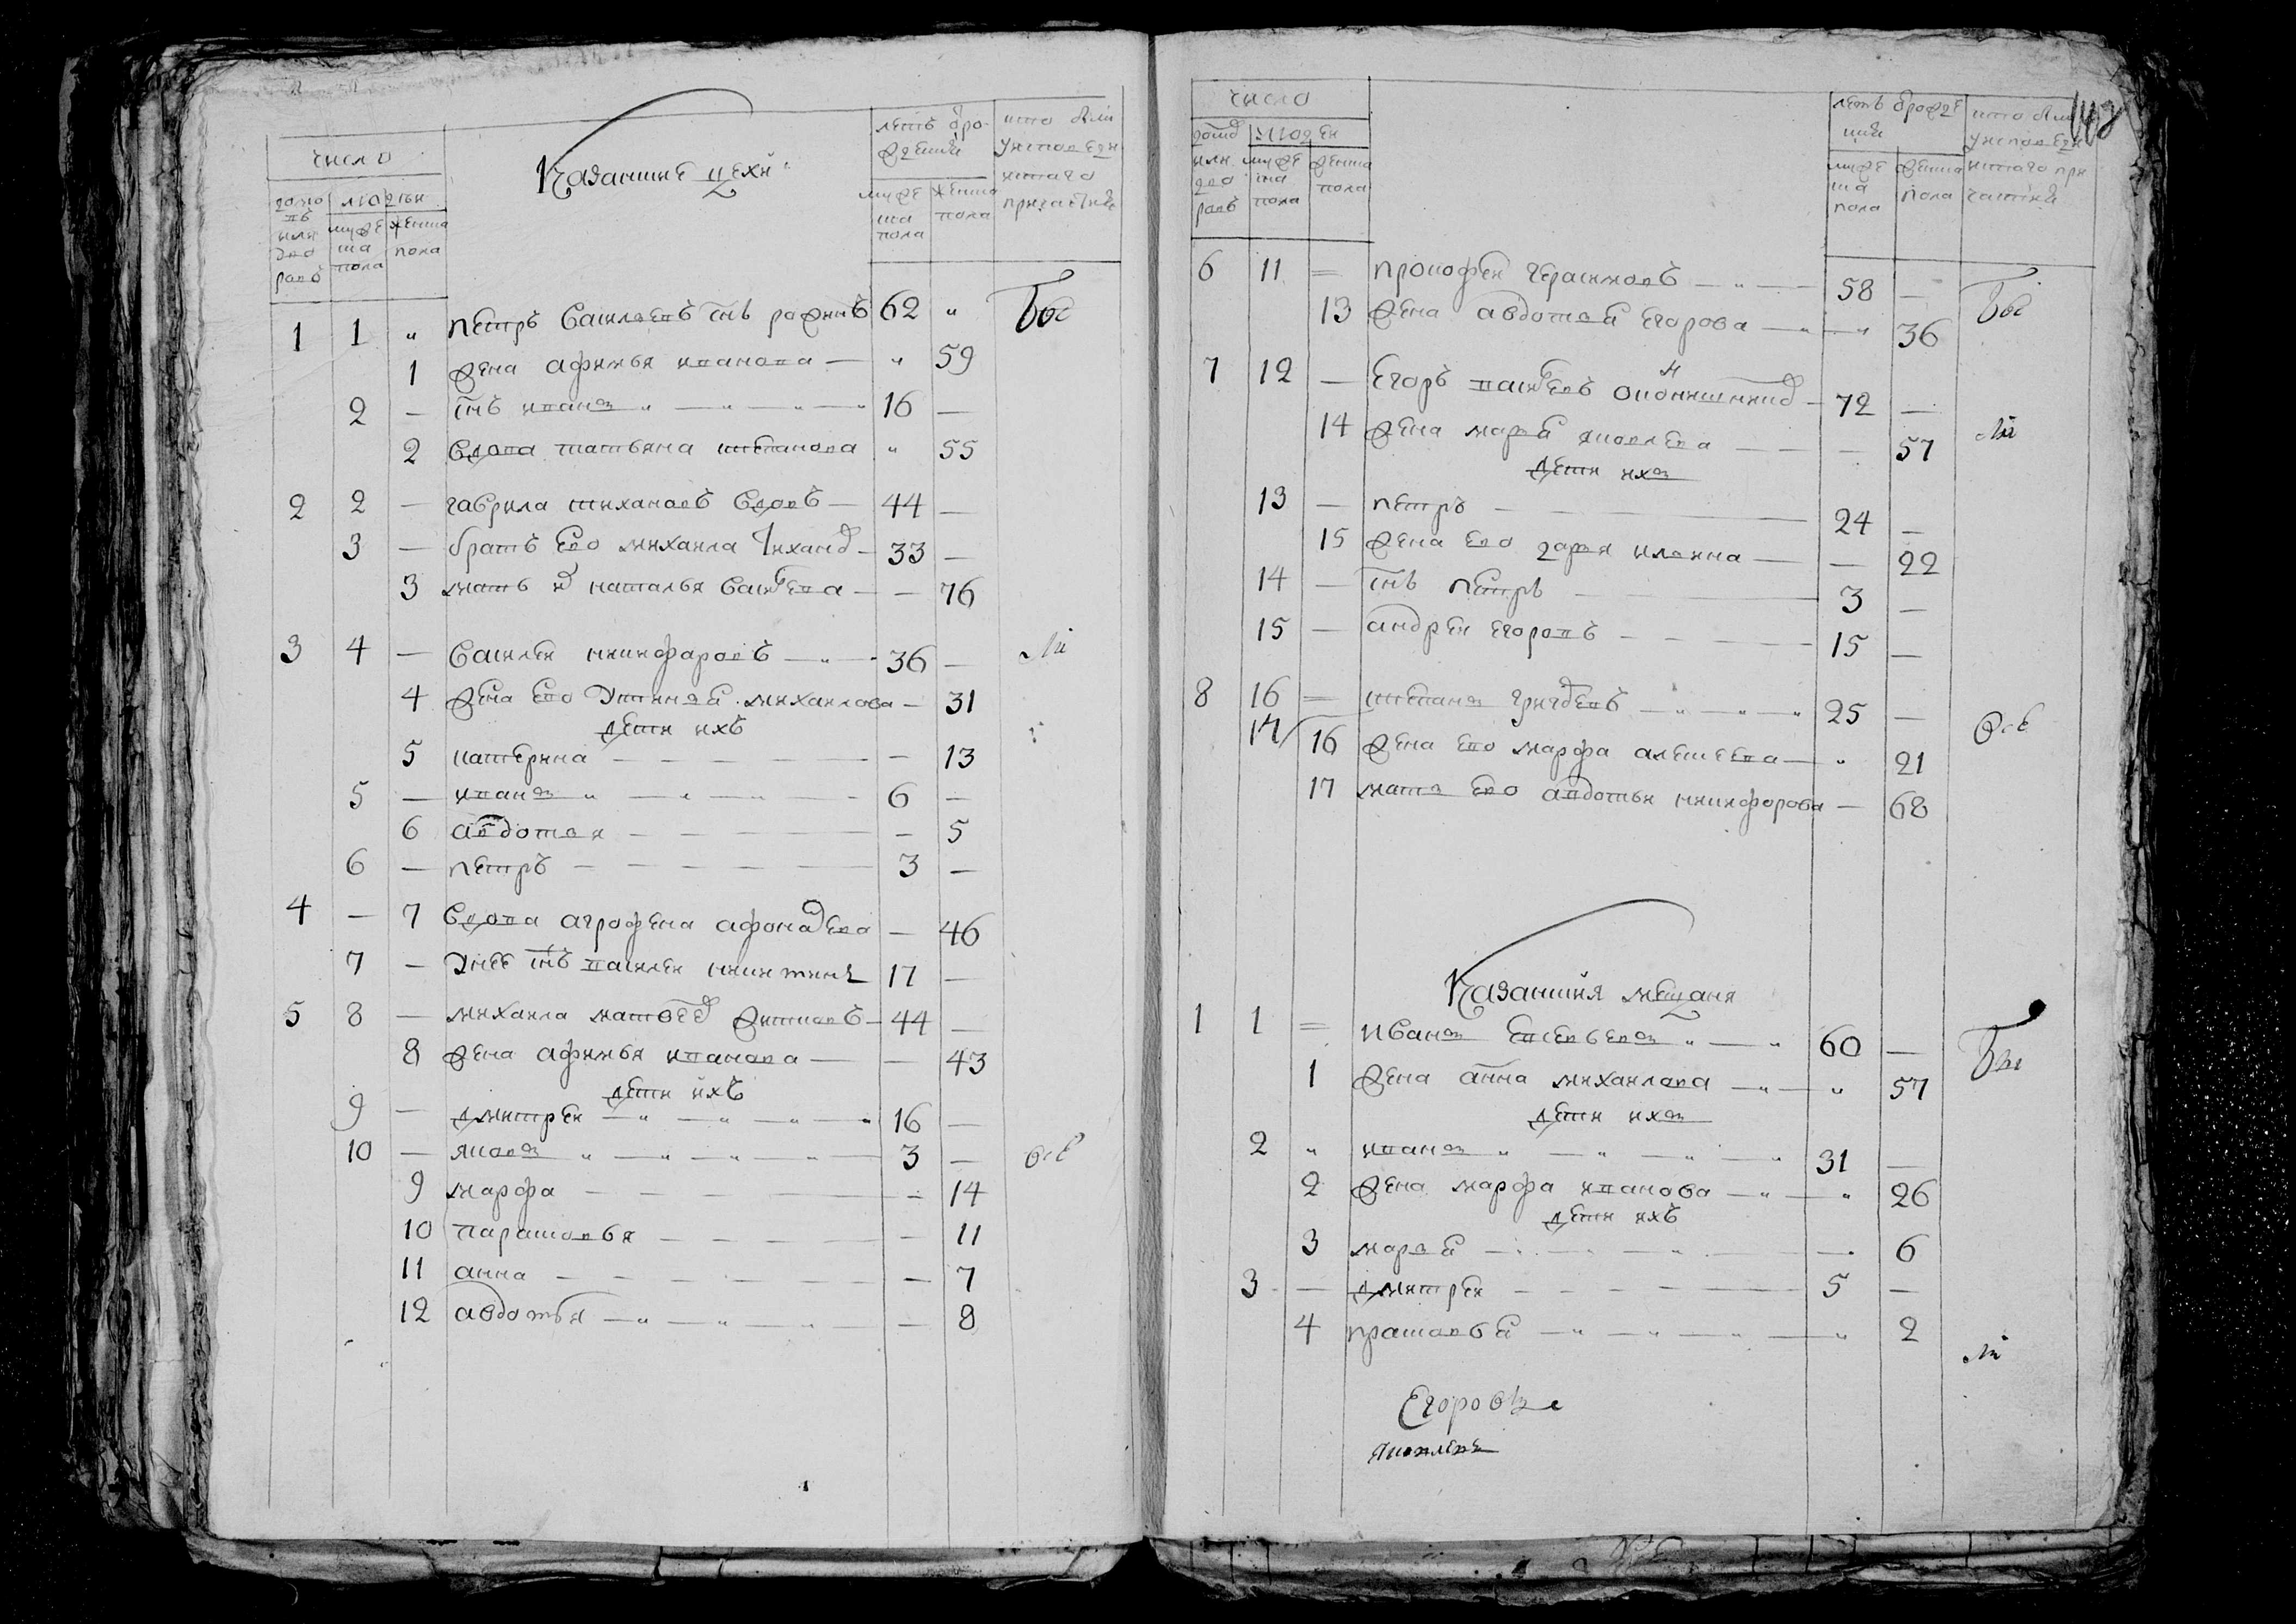 число
домовъ или дворовъ
людеи
мужеска пола
женска пола
Казанские цехи
летъ от рождения
мужеска пола
женска пола
кто были у исповеди и святаго причастия
1 1 „ петръ василевъ 62 „ Бы
1 жена афимья иванова — „ 59
2 — снъ иванъ „ — „ — „ — „ 16 —
2 вдова татьяна степанова „ 55
2 2 — гаврила тихановъ вдовъ — 44 —
3 — братъ ево михаила тихано — 33 —
3 мать их наталья василева — — 76
3 4 — василеи никифаровъ — „ — 36 —
4 жена ево устинья михаилова — 31
дети ихъ
5 катерина — — — — — — 13
5 — иванъ „ — „ — „ — 6 —
6 авдотья — — — — — — 5
6 — петръ — — — — — 3 —
4 — 7 вдова агрофена афонасева — 46
7 — у нее снъ василеи никитинъ 17 —
5 8 — михаила матвеевъ житковъ — 44 —
8 жена афимья иванова — — 43
дети ихъ
9 — дмитреи — „ — „ — „ — „ 16 —
10 — яковъ „ — „ — „ — „ — 3 —
9 марфа — — — — — — 14
10 парасковья — — — — — 11
11 анна — — — — — — — 7
12 авдотья — „ — „ — „ — — 8
число
домовъ или дворовъ
людеи
мужеска пола
женска пола
летъ от рождения
мужеска пола
женска пола
кто были у исповеди и святаго причастия
6 11 = прокофеи герасимовъ — „ — 58 — Бы
13 жена авдотья егорова — „ — „ 36
7 12 — егоръ василевъ 72 —
14 жена марья яковлева — — — 57
дети ихъ
13 — петръ — — 24 —
15 жена ево дарья илина — — 22
14 — снъ петръ — — 3 —
15 — андреи егоровъ — — — — 15 —
8 16 = степанъ григоревъ — „ — „ — „ 25 —
17 16 жена ево марфа алексеева — „ 21
17 мать ево авдотья никифорова — 68
Казанския мещаня
1 1 = иванъ евсевьевъ „ — „ 60 — Бы
1 жена анна михаилова — „ — „ 57
дети ихъ
2 „ иванъ „ — „ — „ — „ 31 —
2 жена марфа иванова — „ — „ 26
дети ихъ
3 марья — „ — „ — „ — — 6
3 — дмитреи — — — — — 5 —
4 прасковья — „ — „ — „ — „ 2
Егоровъ
яковлевъ